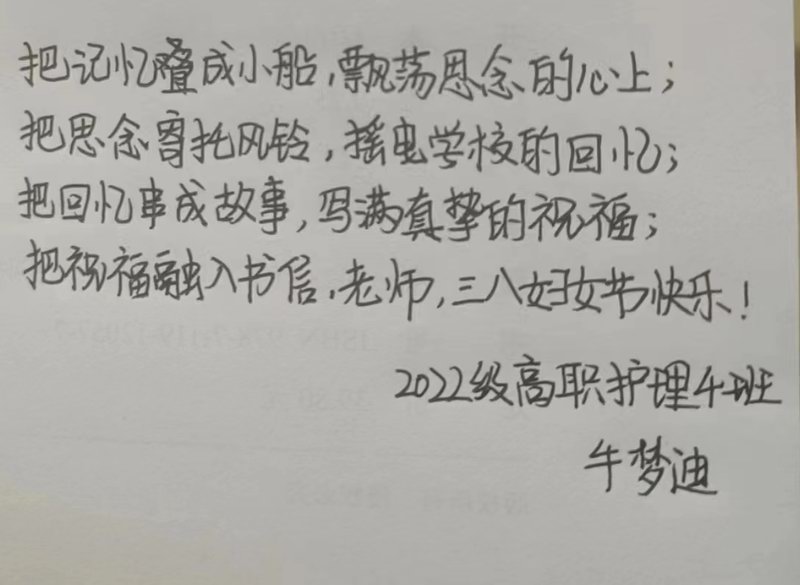 把记忆叠成小船,飘荡思念的心上;
把思念寄托风铃,摇曳学校的回忆;
把回忆串成故事,写满真挚的祝福;
把祝福融入书信,老师,三八妇女节快乐!
2022级高职护理4班
牛梦迪